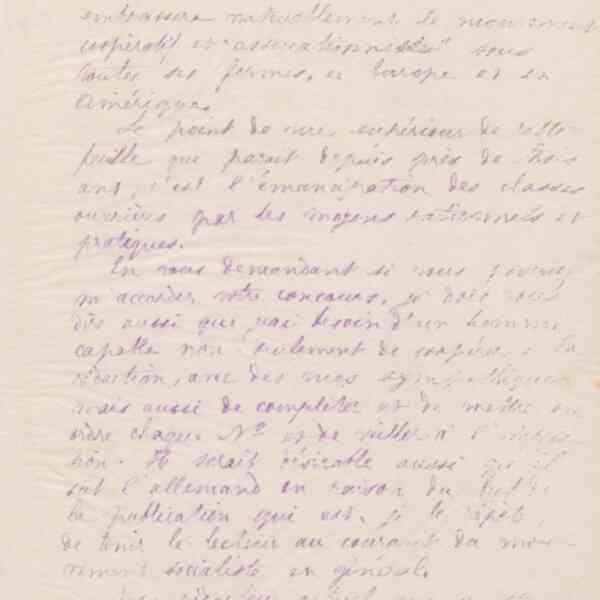 embrassera naturellement le mouvement
coopératif et "associationniste" sous
toutes ses formes, en Europe et en
Amérique.
Le point de vue supérieur de cette
feuille que parait depuis près de trois
ans, c'est l'émancipation des classes
ouvrières par les moyens rationnels et
pratiques.
En vous demandant si vous pouvez
m'accorder votre concours, je dois vous
dire aussi que j'ai besoin d'un homme
capable non seulement de coopérer à la
rédaction, avec des vues sympathiques
mais aussi de compléter et de mettre en
ordre chaque No et de veiller à l'impres-
sion. Il serait désirable aussi qu'il
sut l'allemand en raison du but de
la publication qui est, je le répète,
de tenir le lecteur au courant du mou-
vement socialiste en général.